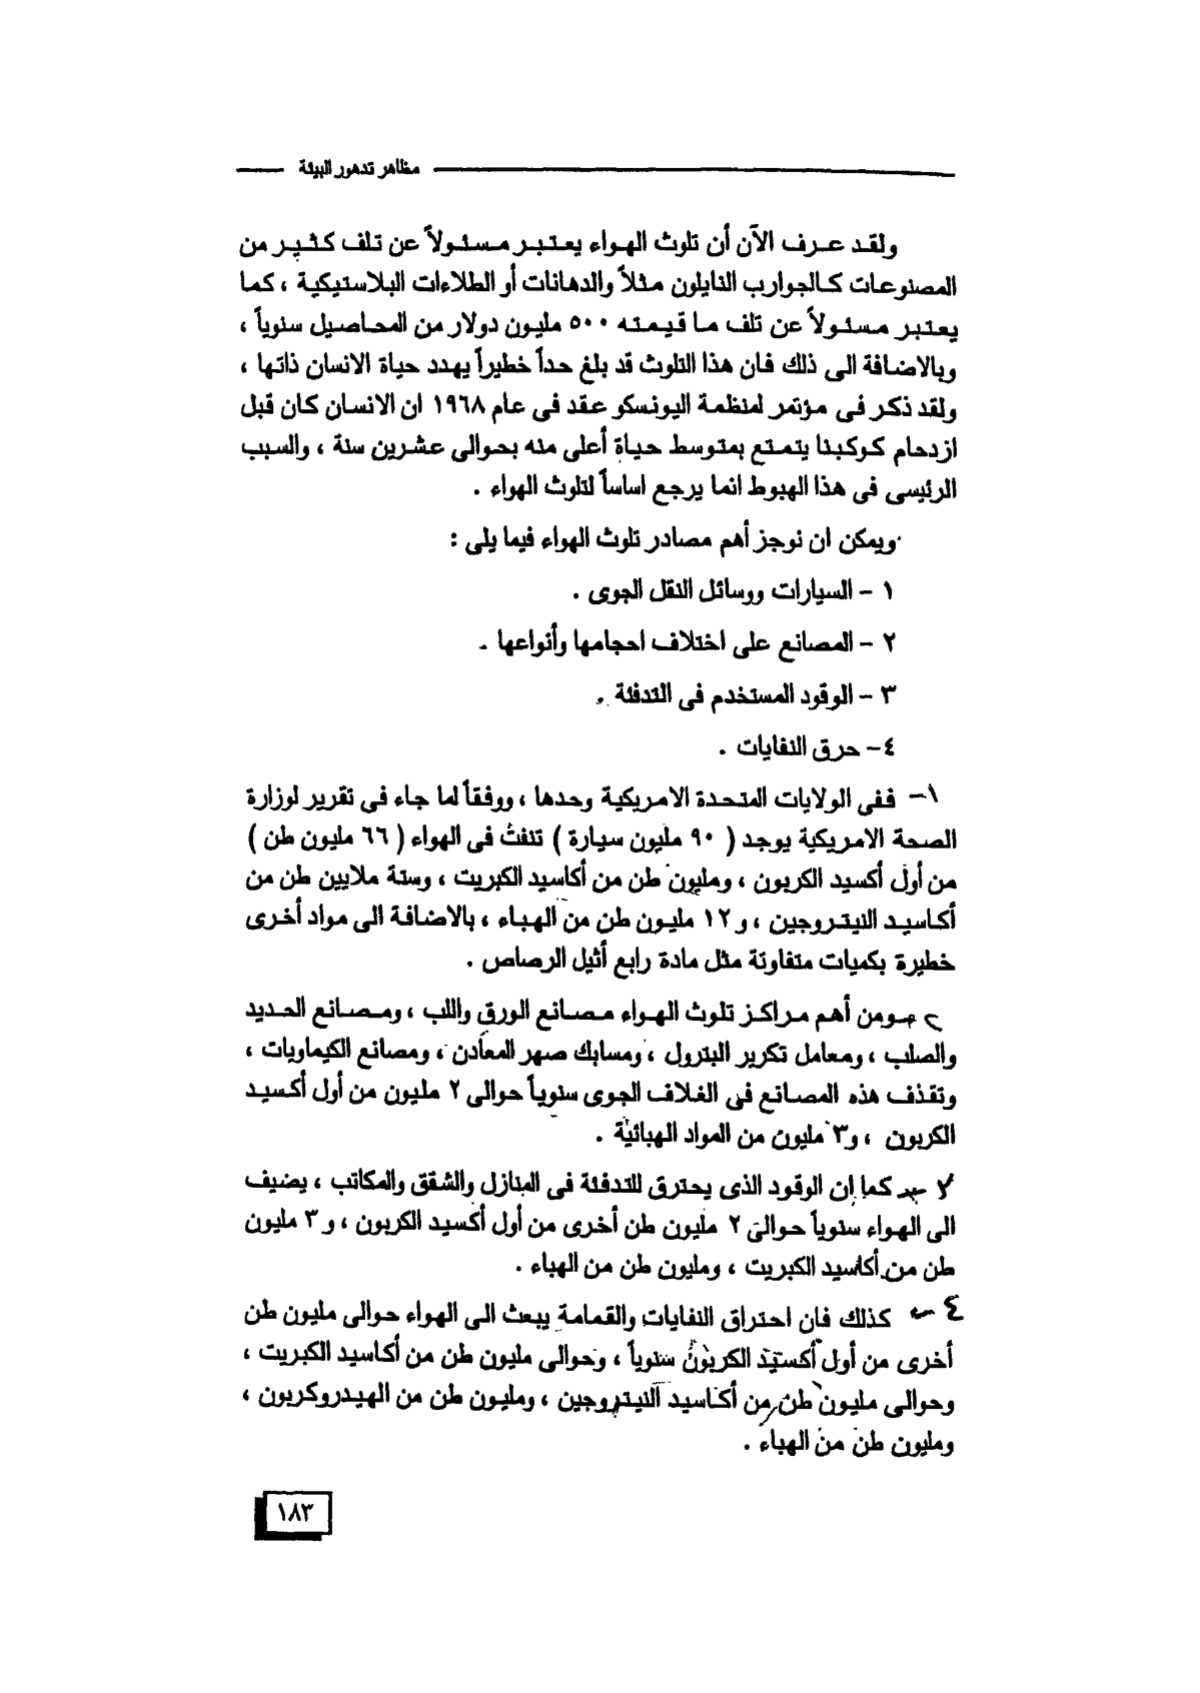 مظاهر تدهور البيئة
ولقد عرف الآن أن تلوث الهواء يعتبر مسئولاً عن تلف كثير من
المصنوعات كالجوارب النايلون مثلاً والدهانات أو الطلاءات البلاستيكية ، كما
يعتبر مسئولاً عن تلف ما قيمته ٥٠٠ مليون دولار من المحاصيل سنوياً ،
وبالاضافة الى ذلك فان هذا التلوث قد بلغ حداً خطيراً يهدد حياة الانسان ذاتها ،
ولقد ذكر فى مؤتمر لمنظمة اليونسكو عقد فى عام ١٩٦٨ ان الانسان كان قبل
ازدحام كوكبنا يتمتع بمتوسط حياة أعلى منه بحوالى عشرين سنة ، والسبب
الرئيسى فى هذا الهبوط انما يرجع اساساً لتلوث الهواء .
ويمكن ان نوجز أهم مصادر تلوث الهواء فيما يلى :
١ – السيارات ووسائل النقل الجوى .
٢ – المصانع على اختلاف احجامها وأنواعها .
٣ – الوقود المستخدم فى التدفئة .
٤– حرق النفايات .
١– ففى الولايات المتحدة الامريكية وحدها ، ووفقاً لما جاء فى تقرير لوزارة
الصحة الامريكية يوجد ( ٩٠ مليون سيارة ) تنفث فى الهواء ( ٦٦ مليون طن )
من أول أكسيد الكربون ، ومليون طن من أكاسيد الكبريت ، وستة ملايين طن من
أكاسيد النيتروجين ، و ١٢ مليون طن من الهباء ، بالاضافة الى مواد أخرى
خطيرة بكميات متفاوتة مثل مادة رابع أثيل الرصاص .
٢ – ومن أهم مراكز تلوث الهواء مصانع الورق واللب ، ومصانع الحديد
والصلب ، ومعامل تكرير البترول ، ومسابك صهر المعادن ، ومصانع الكيماويات ،
وتقذف هذه المصانع فى الغلاف الجوى سنوياً حوالى ٢ مليون من أول أكسيد
الكربون ، و٣ مليون من المواد الهبائية .
– كما إن الوقود الذى يحترق للتدفئة فى المنازل والشقق والمكاتب ، يضيف
الى الهواء سنوياً حوالى ٢ مليون طن أخرى من أول أكسيد الكربون ، و ٣ مليون
طن من أكاسيد الكبريت ، ومليون طن من الهباء .
٤ – كذلك فان احتراق النفايات والقمامة يبعث الى الهواء حوالى مليون طن
أخرى من أول أكسيد الكربون سنوياً ، وحوالى مليون طن من أكاسيد الكبريت ،
وحوالى مليون طن من أكاسيد النيتروجين ، ومليون طن من الهيدروكربون ،
ومليون طن من الهباء .
١٨٣